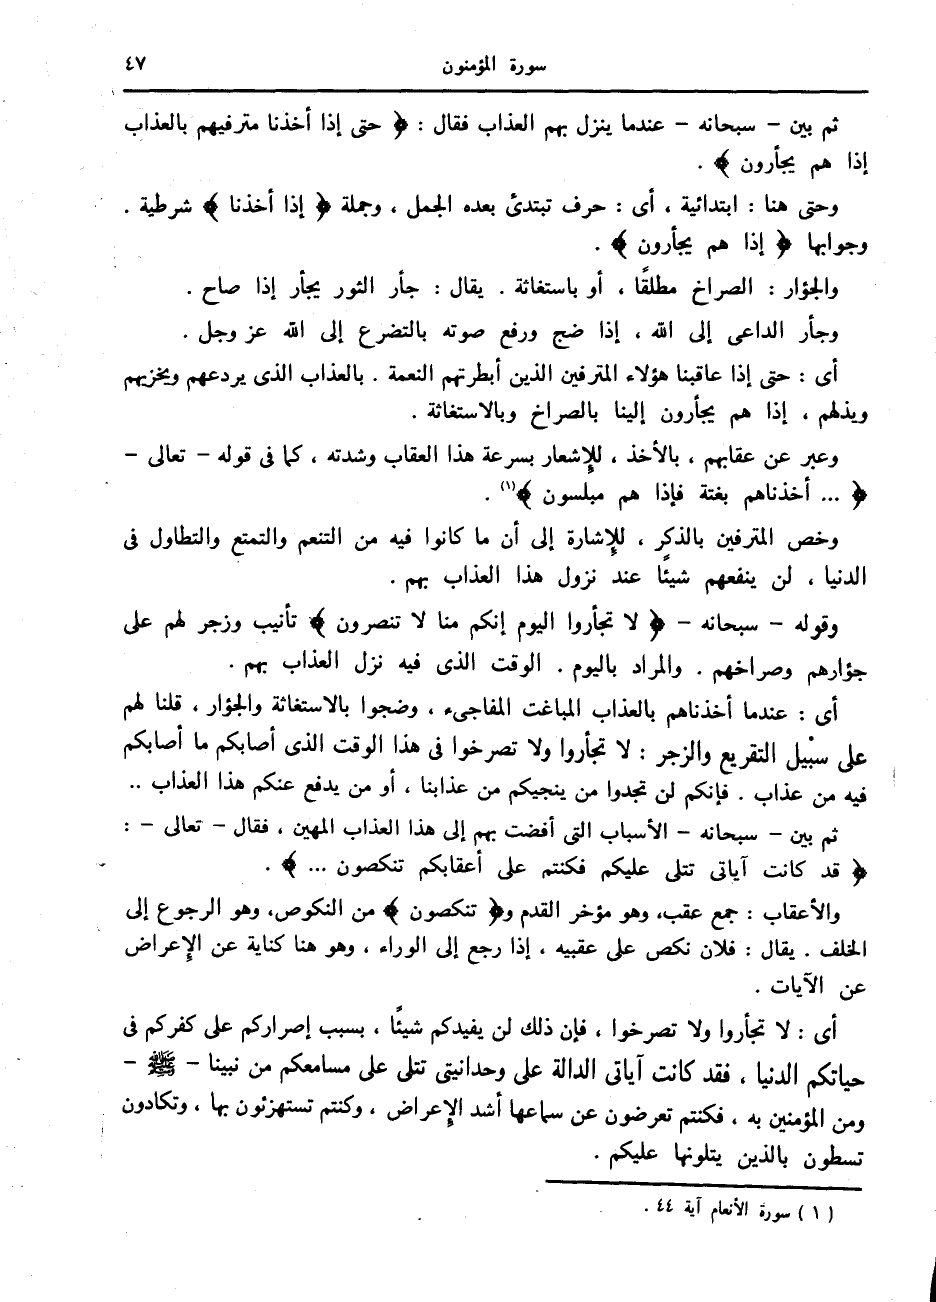 سورة المؤمنون ٤٧
ثم بين – سبحانه – عندما ينزل بهم العذاب فقال : ﴿ حتى إذا أخذنا مترفيهم بالعذاب
إذا هم يجأرون ﴾ .
وحتى هنا : ابتدائية ، أى : حرف تبتدئ بعده الجمل ، وجملة ﴿ إذا أخذنا ﴾ شرطية .
وجوابها ﴿ إذا هم يجأرون ﴾ .
والجؤار : الصراخ مطلقًا ، أو باستغاثة . يقال : جأر الثور يجأر إذا صاح .
وجأر الداعى إلى الله ، إذا ضج ورفع صوته بالتضرع إلى الله عز وجل .
أى : حتى إذا عاقبنا هؤلاء المترفين الذين أبطرتهم النعمة . بالعذاب الذى يردعهم ويخزيهم
ويذلهم ، إذا هم يجأرون إلينا بالصراخ وبالاستغاثة .
وعبر عن عقابهم ، بالأخذ ، للإشعار بسرعة هذا العقاب وشدته ، كما فى قوله – تعالى –
﴿ ... أخذناهم بغتة فإذا هم مبلسون ﴾(١) .
وخص المترفين بالذكر ، للإشارة إلى أن ما كانوا فيه من التنعم والتمتع والتطاول فى
الدنيا ، لن ينفعهم شيئًا عند نزول هذا العذاب بهم .
وقوله – سبحانه – ﴿ لا تجأروا اليوم إنكم منا لا تنصرون ﴾ تأنيب وزجر لهم على
جؤارهم وصراخهم . والمراد باليوم . الوقت الذى فيه نزل العذاب بهم .
أى : عندما أخذناهم بالعذاب المباغت المفاجىء ، وضجوا بالاستغاثة والجؤار ، قلنا لهم
على سبيل التقريع والزجر : لا تجأروا ولا تصرخوا فى هذا الوقت الذى أصابكم ما أصابكم
فيه من عذاب . فإنكم لن تجدوا من ينجيكم من عذابنا ، أو من يدفع عنكم هذا العذاب ..
ثم بين – سبحانه – الأسباب التى أفضت بهم إلى هذا العذاب المهين ، فقال – تعالى – :
﴿ قد كانت آياتى تتلى عليكم فكنتم على أعقابكم تنكصون ... ﴾ .
والأعقاب : جمع عقب، وهو مؤخر القدم و﴿ تنكصون ﴾ من النكوص، وهو الرجوع إلى
الخلف . يقال : فلان نكص على عقبيه ، إذا رجع إلى الوراء ، وهو هنا كناية عن الإعراض
عن الآيات .
أى : لا تجأروا ولا تصرخوا ، فإن ذلك لن يفيدكم شيئًا ، بسبب إصراركم على كفركم فى
حياتكم الدنيا ، فقد كانت آياتى الدالة على وحدانيتى تتلى على مسامعكم من نبينا – ﷺ –
ومن المؤمنين به ، فكنتم تعرضون عن سماعها أشد الإعراض ، وكنتم تستهزئون بها ، وتكادون
تسطون بالذين يتلونها عليكم .
( ١ ) سورة الأنعام آية ٤٤ .